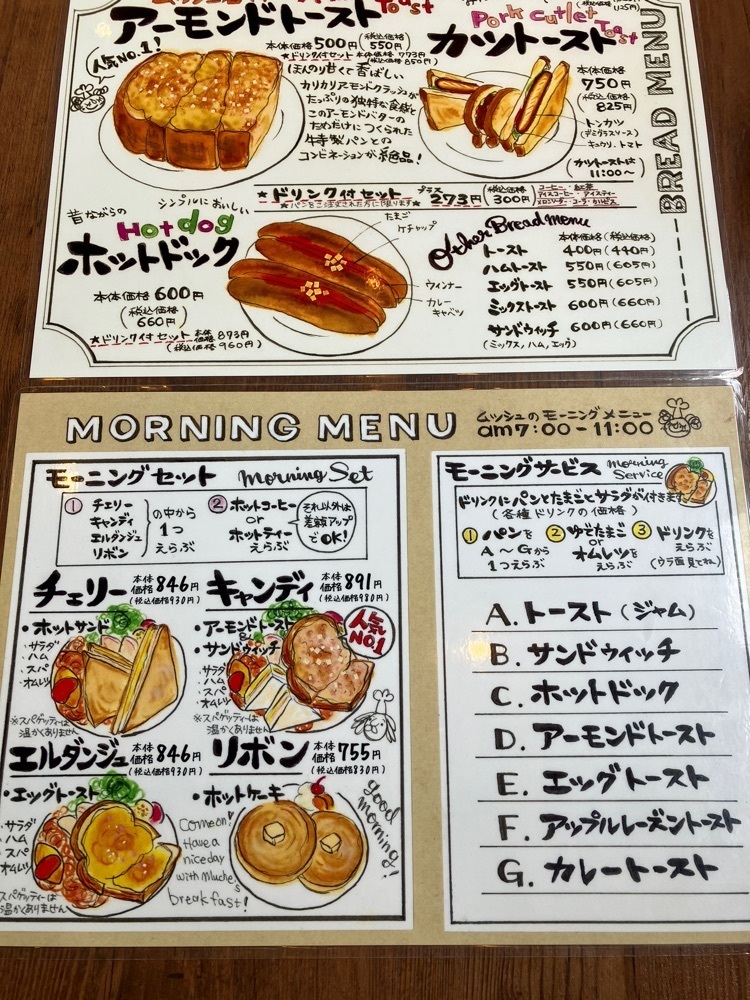 Toast
アーモンドトースト
人気No.1!
本体価格500円(税込価格550円)
★ドリンク付セット 本体価格773円(税込価格850円)
ほんのり甘くて香ばしい
カリカリアーモンドクラッシュが
たっぷりの独特な食感と
このアーモンドバターの
ためだけにつくられた
牛特製パンとの
コンビネーションが絶品!
Pork Cutlet Toast
カツトースト
本体価格
750円
(税込価格)
825円
トンカツ
(デミグラスソース)
キュウリ、トマト
(カツトーストは
11:00〜)
BREAD MENU
★ドリンク付セット プラス 273円(税込価格300円)
★パンをご注文された方に限ります★
コーヒー・紅茶
アイスコーヒー・アイスティー
メロンソーダ・コーラ・カルピス
昔ながらの シンプルにおいしい
Hotdog
ホットドック
本体価格600円
(税込価格)
660円
★ドリンク付セット 本体価格873円
(税込価格960円)
たまご
ケチャップ
ウィンナー
カレー
キャベツ
Other Bread menu
本体価格(税込価格)
トースト 400円(440円)
ハムトースト 550円(605円)
エッグトースト 550円(605円)
ミックストースト 600円(660円)
サンドウィッチ 600円(660円)
(ミックス,ハム,エッグ)
MORNING MENU
ムッシュのモーニングメニュー
am7:00-11:00
モーニングセット Morning Set
① チェリー
キャンディ
エルダンジュ
リボン
の中から
1つ
えらぶ
② ホットコーヒー
or
ホットティー
えらぶ
それ以外は
差額アップ
でOK!
チェリー 本体価格846円
(税込価格930円)
・ホットサンド
サラダ
ハム
スパ
オムレツ
※スパゲッティーは
温かくありません
キャンディ 本体価格891円
(税込価格980円)
・アーモンドトースト
&
・サンドウィッチ
サラダ
ハム
スパ
オムレツ
※スパゲッティーは
温かくありません
人気
NO.1
エルダンジュ 本体価格846円
(税込価格930円)
・エッグトースト
・サラダ
ハム
スパ
オムレツ
スパゲッティーは
温かくありません
リボン 本体価格755円
(税込価格830円)
・ホットケーキ
good morning!
Come on!
Have a
nice day
with Muche's
breakfast!
モーニングサービス Morning Service
ドリンクにパンとたまごとサラダが付きます。
(各種ドリンクの価格)
① パンを
A〜Gから
1つえらぶ
② ゆでたまご
or
オムレツを
えらぶ
③ ドリンクを
えらぶ
(ウラ面見てね)
A. トースト(ジャム)
B. サンドウィッチ
C. ホットドック
D. アーモンドトースト
E. エッグトースト
F. アップルレーズントースト
G. カレートースト